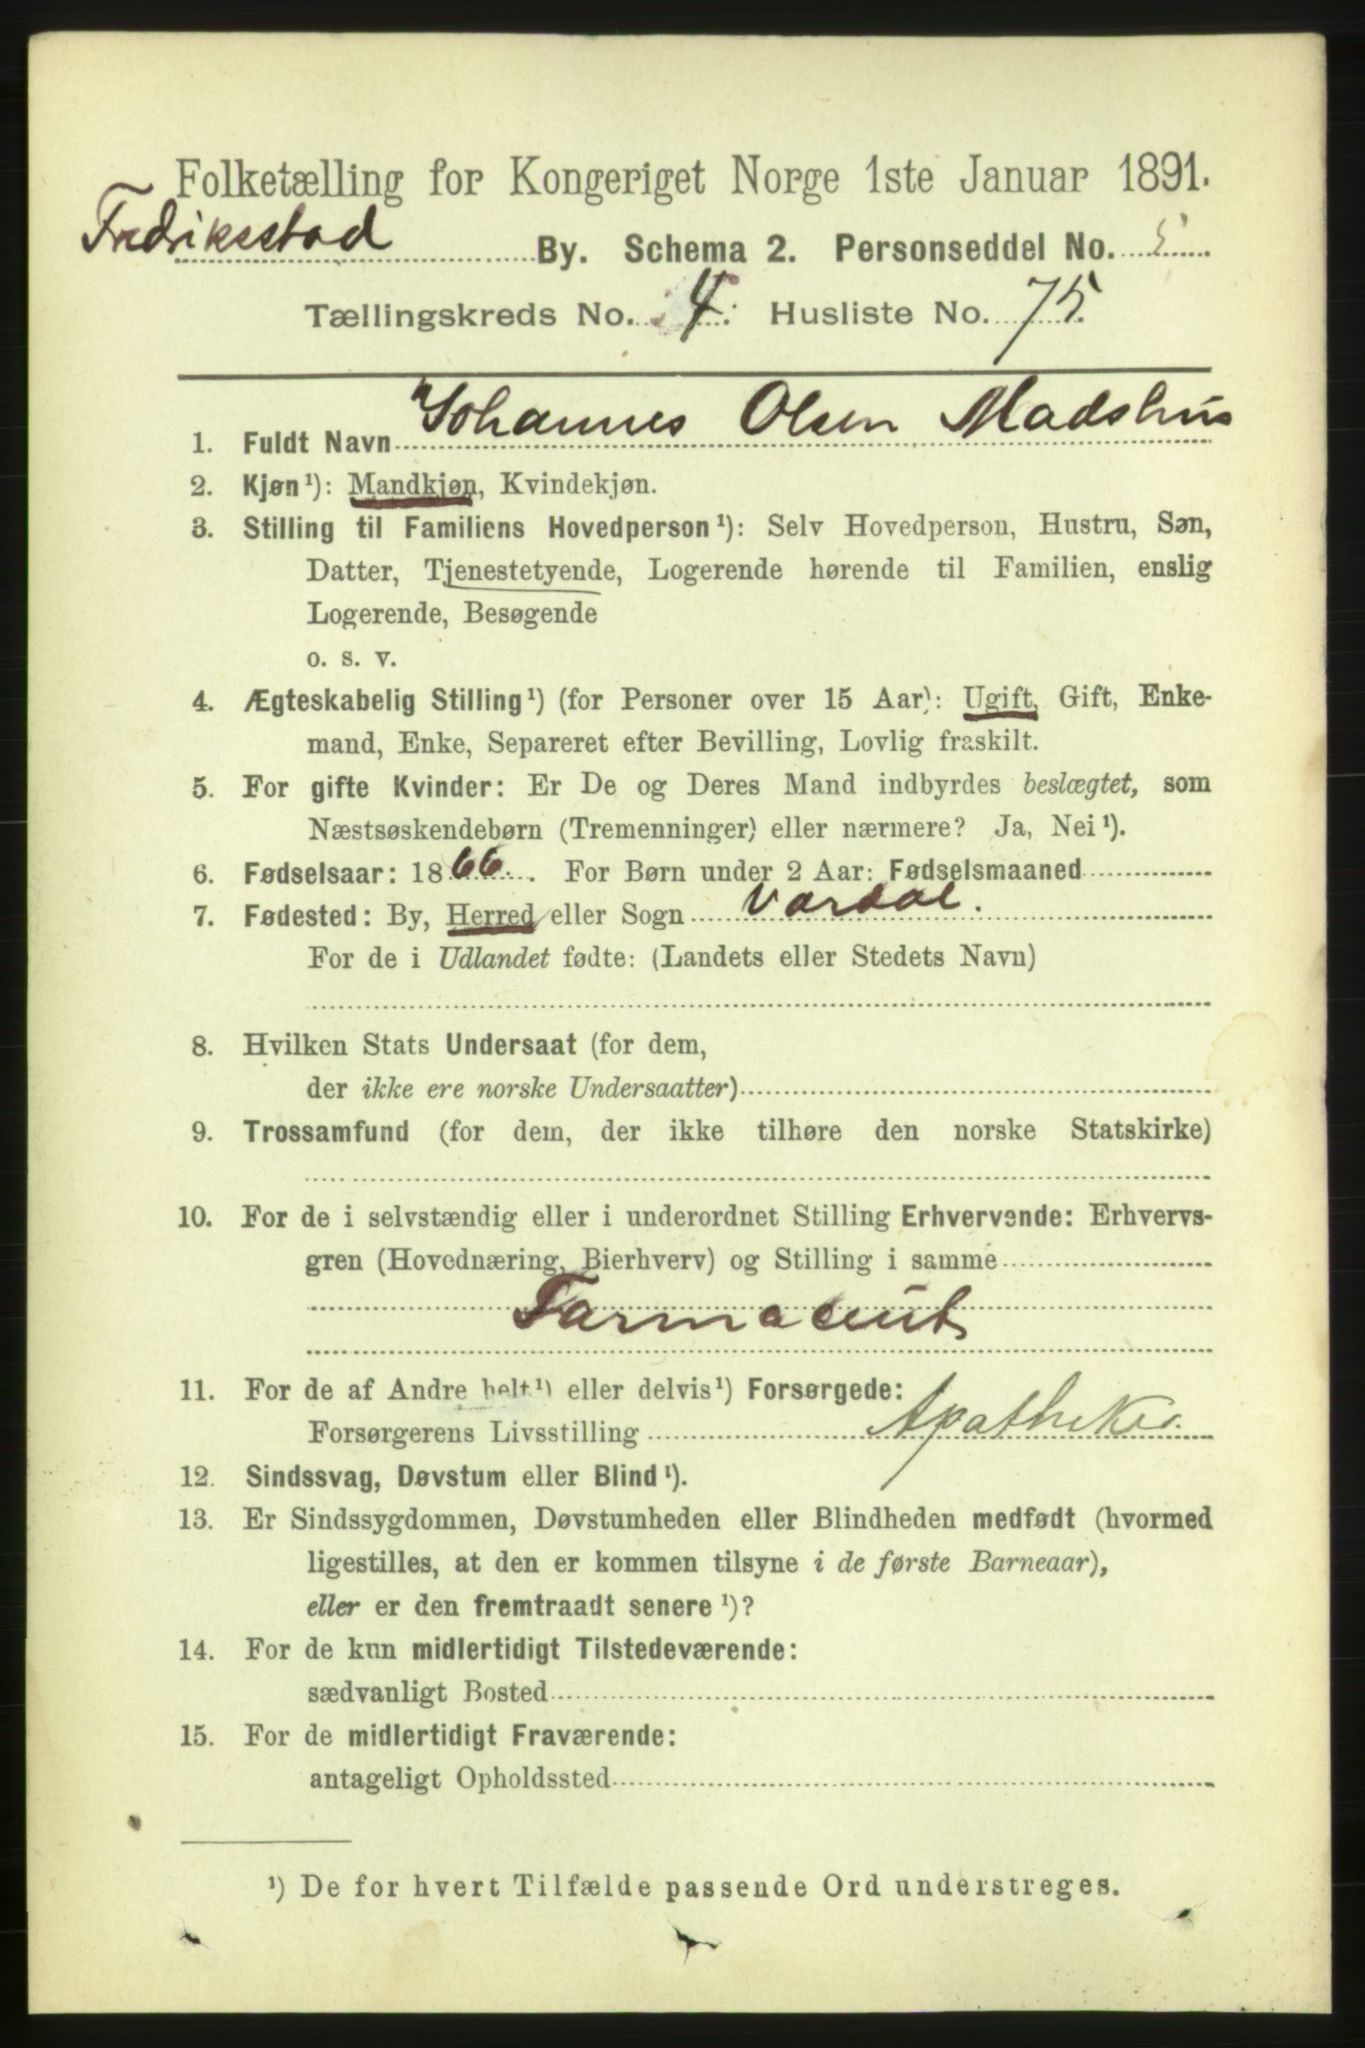 Folketælling for Kongeriget Norge 1ste Januar 1891.
Fredriksstad By. Schema 2. Personseddel No. 5
Tællingskreds No. 4. Husliste No. 75.
1. Fuldt Navn Johannes Olsen Madshus
2. Kjøn¹): Mandkjøn, Kvindekjøn.
3. Stilling til Familiens Hovedperson¹): Selv Hovedperson, Hustru, Søn,
Datter, Tjenestetyende, Logerende hørende til Familien, enslig
Logerende, Besøgende
o. s. v.
4. Ægteskabelig Stilling¹) (for Personer over 15 Aar): Ugift, Gift, Enke-
mand, Enke, Separeret efter Bevilling, Lovlig fraskilt.
5. For gifte Kvinder: Er De og Deres Mand indbyrdes beslægtet, som
Næstsøskendebørn (Tremenninger) eller nærmere? Ja, Nei¹).
6. Fødselsaar: 1866. For Børn under 2 Aar: Fødselsmaaned
7. Fødested: By, Herred eller Sogn Vardal.
For de i Udlandet fødte: (Landets eller Stedets Navn)
8. Hvilken Stats Undersaat (for dem,
der ikke ere norske Undersaatter)
9. Trossamfund (for dem, der ikke tilhøre den norske Statskirke)
10. For de i selvstændig eller i underordnet Stilling Erhvervende: Erhvervs-
gren (Hovednæring, Bierhverv) og Stilling i samme
Farmaceut
11. For de af Andre helt¹) eller delvis¹) Forsørgede:
Forsørgerens Livsstilling Apotheker.
12. Sindssvag, Døvstum eller Blind¹).
13. Er Sindssygdommen, Døvstumheden eller Blindheden medfødt (hvormed
ligestilles, at den er kommen tilsyne i de første Barneaar),
eller er den fremtraadt senere¹)?
14. For de kun midlertidigt Tilstedeværende:
sædvanligt Bosted
15. For de midlertidigt Fraværende:
antageligt Opholdssted
¹) De for hvert Tilfælde passende Ord understreges.